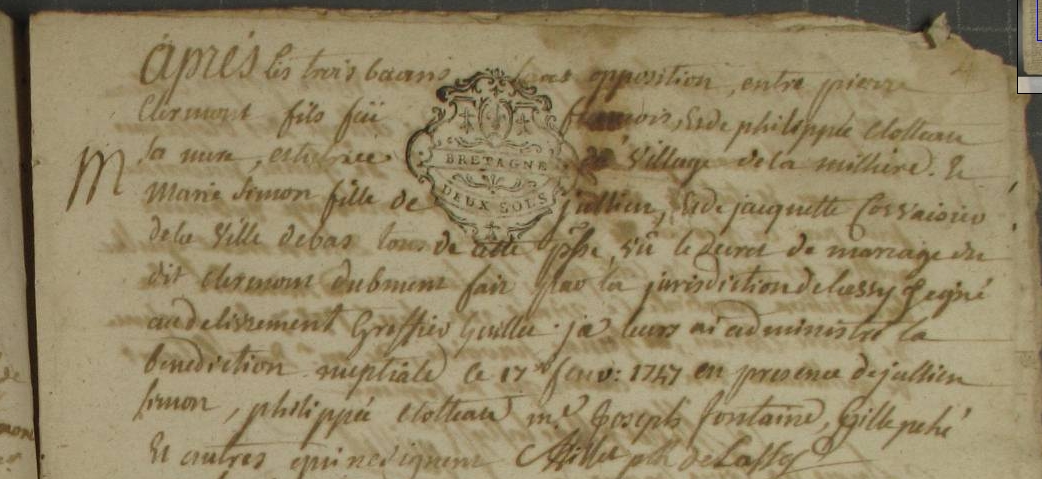 après les trois bans sans opposition, entre pierre
Clermont fils feü françois, & de philippée Clolteau
M
sa mere, du village de la milliere. Et
BRETAGNE
DEUX SOLS
Marie Simon fille de jullien, & de jacquette
de la Ville de bas tous de cette psse, vû le decret de mariage du
dit clermont dubment fait par la jurisdiction de lassy
au delivrement Greffier Guillu. je leurs ai administré la
benediction nuptiale ce 17 fevv: 1747 en presence de jullien
simon, philippée Clolteau mr. Joseph fontaine, gille pehé
Et autres qui ne signent Millet ptre de Lassy